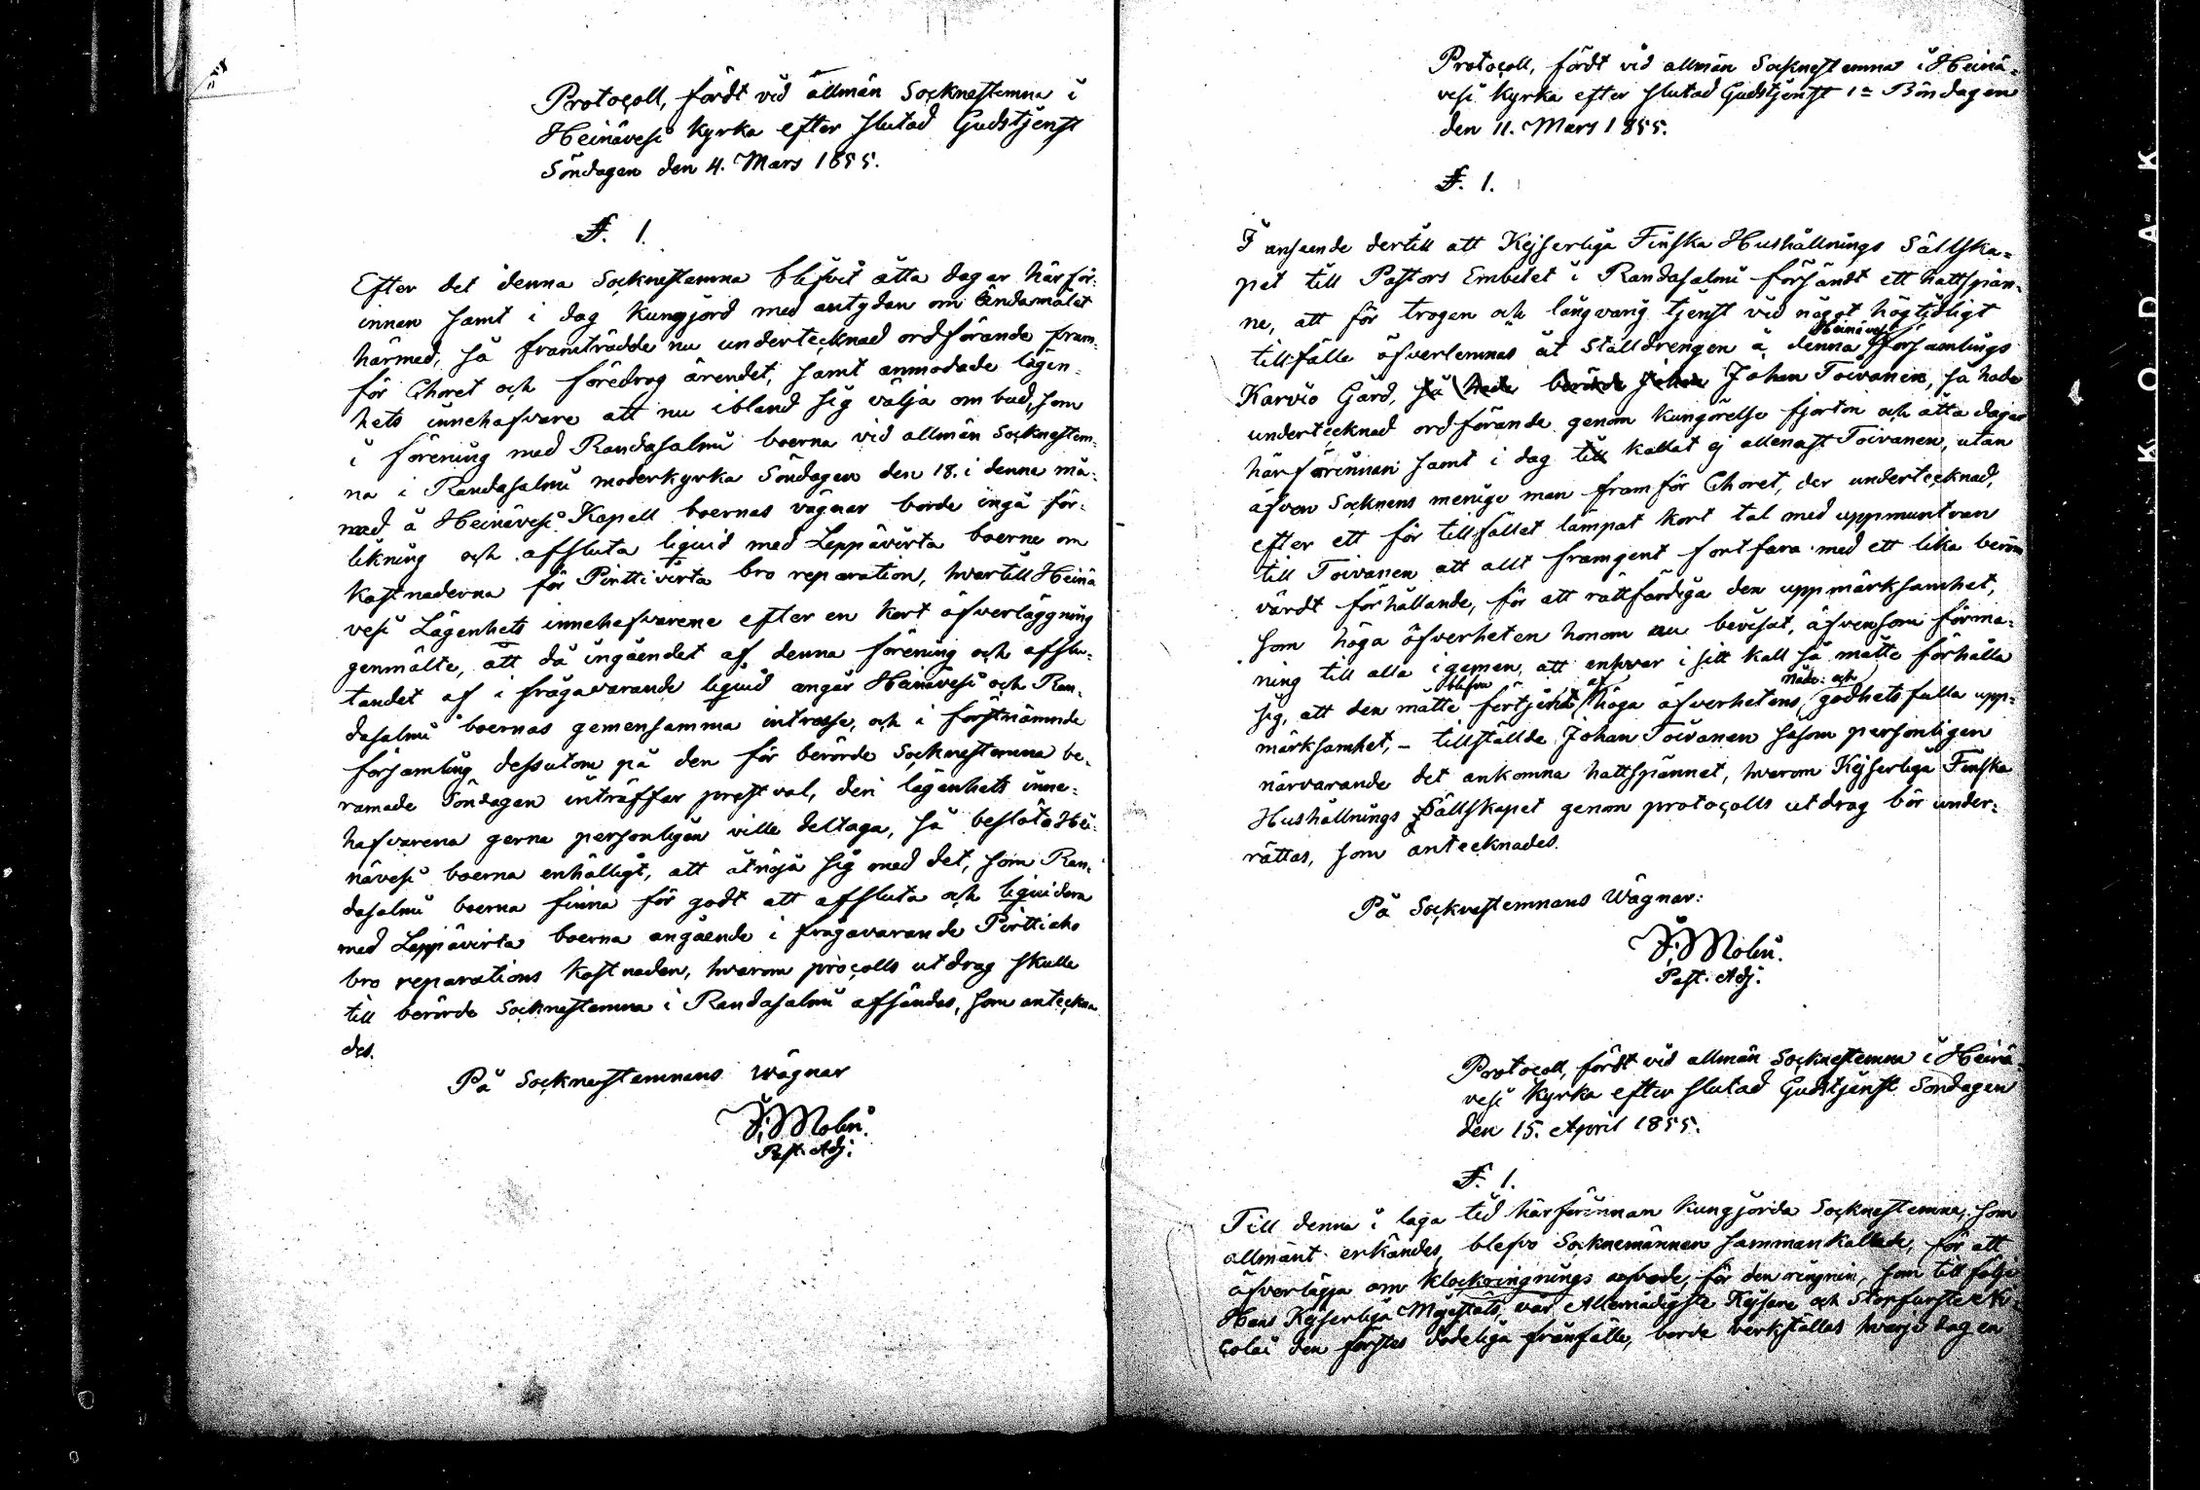 Protocoll, fördt vid allmän Socknestemna i
Heinävesi Kyrka efter slutad Gudstjenst
Söndagen den 4. Mars 1855.
§. 1.
Efter det denna Socknestemna blifvit åtta dagar härför-
innan samt i dag kungjord med antydan om ändamålet
härmed, så framträdde nu undertecknad ordförande fram-
för Choret och föredrog ärendet, samt anmodade lägen-
hets innehafvare att nu ibland sig välja ombud, som
i förening med Randasalmi boerna vid allmän Socknestem-
na i Randasalmi moderkyrka Söndagen den 18. i denna må-
nad å Heinävesi Kapell boernas vägnar borde ingå för-
likning och afsluta liquid med Leppävirta boerne om
kostnaderna för Pirttivirta bro reparation, hvartill Heinä
vesi Lägenhets innehafvarene efter en kort öfverläggning
genmälte, att då ingåendet af denna förening och afslu-
tandet af i frågavarande liquid angår Heinävesi och Ran-
dasalmi boernas gemensamma intresse, och i förstnämnde
församling dessutom på den för berörde Socknestemna be-
ramade Söndagen inträffar prestval, deri lägenhets inne-
hafvarena gerna personligen ville deltaga, så beslöto Hei-
nävesi boerna enhälligt, att åtnöja sig med det, som Ran-
dasalmi boerna finna för godt att afsluta och liquidera
med Leppävirta boerna angående i frågavarande Pirttiaho
bro reparations kostnaden, hvarom procolls utdrag skulle
till berörde Socknestemna i Randasalmi afsändas, som anteckna
des.
På Socknestemnans Wägnar
F. Molin.
Past. Adj.
Protocoll, fördt vid allmän Socknestemna i Heinä-
vesi Kyrka efter slutad Gudstjenst 1a Böndagen
den 11. Mars 1855.
§. 1.
I anseende dertill att Kejserliga Finska Hushållnings Sällska-
pet till Pastors Embetet i Randasalmi försändt ett hattspän-
ne, att för trogen och långvarig tjenst vid något högtidligt
tillfälle öfverlemnas åt Stalldrengen å denna Heinävesi församlings
Karvio Gård, så hade berörde Johan Johan Toivanen, så hade
undertecknad ordförande genom kungörelse fjorton och åtta dagar
härförinnan samt i dag till kallat ej allenast Toivanen, utan
äfven Socknens menige man framför Choret, der undertecknad,
efter ett för tillfället lämpat kort tal med uppmuntran
till Toivanen att allt framgent fortfara med ett lika beröm
värdt förhållande, för att rättfärdiga den uppmärksamhet,
som höga öfverheten honom nu bevisat, äfvensom förma-
ning till alla i gemen, att enhvar i sitt kall så måtte förhålla
sig, att den måtte blifva förtjent af höga öfverhetens nåde- och godhetsfulla upp-
märksamhet, – tillställde Johan Toivanen såsom personligen
närvarande det ankomna hattspännet, hvarom Kejserliga Finska
Hushållnings Sällskapet genom protocolls utdrag bör under-
rättas, som antecknades.
På Socknestemnans Wägnar:
F. Molin.
Past. Adj.
Protocoll, fördt vid allmän Socknestemna i Heinä-
vesi Kyrka efter slutad Gudstjenst Söndagen
den 15. April 1855.
§. 1.
Till denna i laga tid härförinnan kungjorda Socknestemna, som
allmänt erkändes, blefvo Socknemännen sammankallade, för att
öfverlägga om klockringnings arfvode, för den ringnin, som till följe
Hans Kejserliga Majestäts, vår Allernådigste Kejsare och Storfurste Ni-
colai den förstes dödeliga frånfälle, borde verkställas hvarje dag en